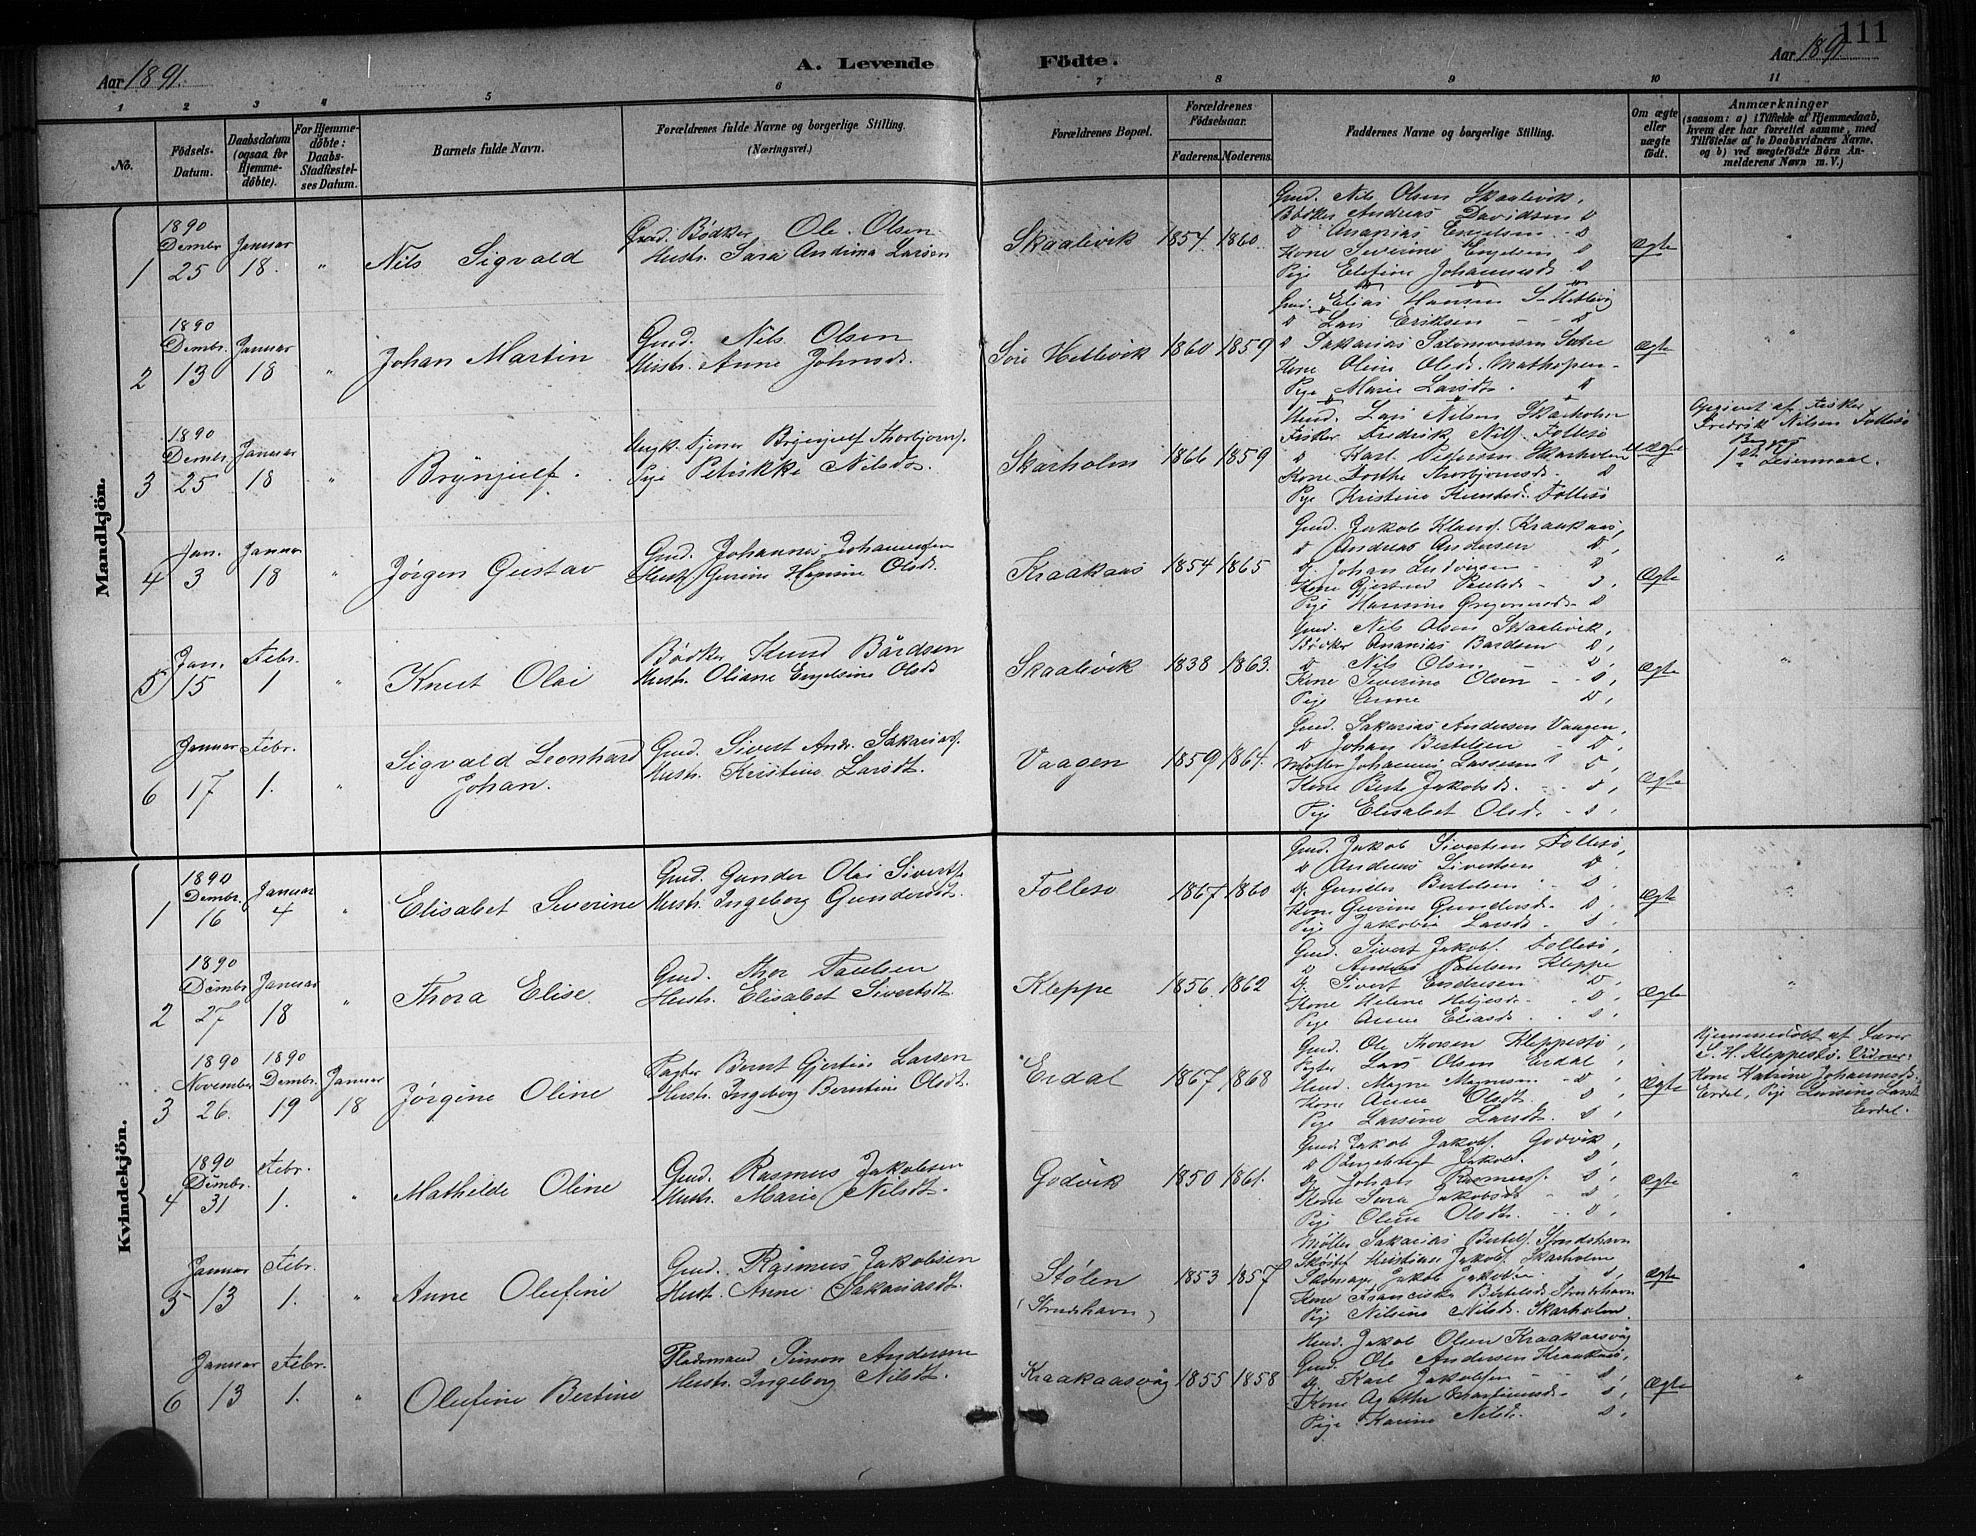 111
Aar 1891.
A. Levende Födte.
Aar 1891
1 2 3 4 5 6 7 8 9 10 11
No.
Födsels-Datum.
Daabsdatum (ogsaa for Hjemme-döbte).
For Hjemme-döbte: Daabs-Stadfæstel-ses Datum.
Barnets fulde Navn.
Forældrenes fulde Navne og borgerlige Stilling. (Næringsvei.)
Forældrenes Bopæl.
Forældrenes Födselsaar.
Faderens. Moderens.
Faddernes Navne og borgerlige Stilling.
Om ægte eller uægte födt.
Anmærkninger
(saasom: a) i Tilfælde af Hjemmedaab, hvem der har forrettet samme, med Tilföielse af to Daabsvidners Navne. og b) ved uægtefödte Börn An-melderens Navn m. V.)
Mandkjön.
1 1890 Dembr 25 Januar 18. " Nils Sigvald
Gmd. Bødker Ole Olsen
Hustr. Sara Andrina Larsen
Skaalevik 1854 1860.
Gmd. Nils Olsen Skaalevik,
Bødker Andreas Davidsen D
D Ananias Engelsen D
Kone Severine Engelsen D
Pige Elefine Johannesd. D
Ægte "
2 1890 Dembr. 13 Januar 18 " Johan Martin
Gmd. Nils Olsen
Hustr. Anne Johnsd.
Søre Hetlevik 1860 1859
Gmd. Elias Hansen S. Hetlevig
D Lars Eriksen D
D Sakarias Salomonsen Sætre
Kone Oline Olsd. Mathopen
Pige Marie Larsdt. D
Ægte "
3 1890 Dembr. 25 Januar 18 " Brynjulf.
Ungk. Tjener Brynjulf Thorbjørns.
Pige Petrikke Nilsdt.
Skarholm 1866 1859
Huusmd. Lars Nilsen Skarholm
Fisker Fredrik Nils. Follesø
D Karl Pedersen Skarholm
Kone Dorthe Thorbjørnsd. D
Pige Kristine Knutsd. Follesø
Uægte
Opgivet af Fisker
Fredrik Nilsen Follesø
Leiermaal.
4 Jan. 3 Januar 18 " Jørgen Gustav
Gmd. Johannes Johannessen
Hustr. Gurine Hansine Olsd.
Kraakaas 1854 1865
Gmd. Jakob Klaus. Kraakaas,
D Andreas Andersen D,
Johan Ludvigsen D
Kone Gjertrud Paulsd. D,
Pige Hansine Gregoriusd. D
Ægte "
5 Jan. 15 Febr. 1 " Knut Olai
Bødker Knud Bårdsen
Hustr. Oliane Engelsine Olsd.
Skaalevik 1838 1863.
Gmd. Nils Olsen Skaalevik,
Bødker Ananias Bardsen D,
D Nils Olsen D,
Kone Severine Olsen D,
Pige Anne D,
Ægte
6 Januar 17 Febr. 1. " Sigvald Leonhard Johan.
Gmd. Sivert Andr. Sakarias.
Hustr. Kristine Larsdt.
Vaagen 1859 1864.
Gmd. Sakarias Andersen Vaagen,
D Johan Bertelsen D,
Møller Johannes Lassesen D,
Kone Berte Jakobsd. D,
Pige Elisabet Olsd. D,
Ægte
Kvindekjön.
1 1890 Dembr. 16 Januar 4 " Elisabet Severine
Gmd. Gunder Olai Siverts.
Hustr. Ingeborg Gundersdt.
Follesø 1867 1860
Gmd. Jakob Sivertsen Follesø,
D Andreas Sivertsen D.
Gunder Bertelsen D,
Kone Gurine Gundersd. D,
Pige Jakobia Larsd. D,
Ægte "
2 1890 Dembr. 27 Januar 18 " Thora Elise.
Gmd. Thor Paulsen
Hustr. Elisabet Sivertsdt.
Kleppe 1856. 1862
Gmd. Sivert Jakobs. Follesø,
D Andreas Paulsen Kleppe
Sivert Endresen D,
Kone Helene Heljesd. D,
Pige Anne Eliasd. D,
Ægte "
3 1890 November 26. 1890 Dembr. 19 Januar 18 Jørgine Oline
Pagter Bernt Gjertin Larsen
Hustr. Ingeborg Berntine Olsdt.
Erdal 1867 1868
Gmd. Ole Thorsen Kleppestø,
Pagter Lars Olsen Erdal,
Huusmd. Magne Magnesen D,
Kone Anne Olsdt. D,
Pige Larsine Larsdt. D,
Ægte
Hjemmedøbt af Lærer
H. Kleppestø. Vidner:
Kone Katrine Johannesd.
Erdal, Pige Larsine Larsdt
Erdal.
4 1890 Dembr. 31 Febr. 1. " Mathilde Oline
Gmd. Rasmus Jakobsen
Hustr. Marie Nilsdt.
Godvik 1850 1861.
Gmd. Jakob Jakobs. Godvik,
D Ingebrigt Jakobs. D,
Johans Rasmuss. D,
Kone Sara Jakobsd. D,
Pige Oline Olsdt. D,
Ægte "
5 Januar 13 Febr. 1. " Anne Olufine
Gmd. Rasmus Jakobsen
Hustr. Anne Sakariasdt.
Stølen (Strudshavn) 1853 1857
Møller Sakarias Bertels. Strudshavn
Kristian Jakobs. Skarholm
Skomager Jakob Jakobsen D,
Kone Franciska Bertelsd. Strudshavn
Pige Nilsine Nilsd. Skarholm
Ægte "
6 Januar 13 Febr. 1. " Olufine Bertine
Pladsmand Simon Andersen
Hustr. Ingeborg Nilsdt.
Kraakaasvåg 1855 1858
Huusmd. Jakob Olsen Kraakaasvåg
Gmd. Ole Andersen Kraakaas,
Karl Jakobsen D,
Kone Agathe Martinusd. D,
Pige Karine Nilsd. D,
Ægte "